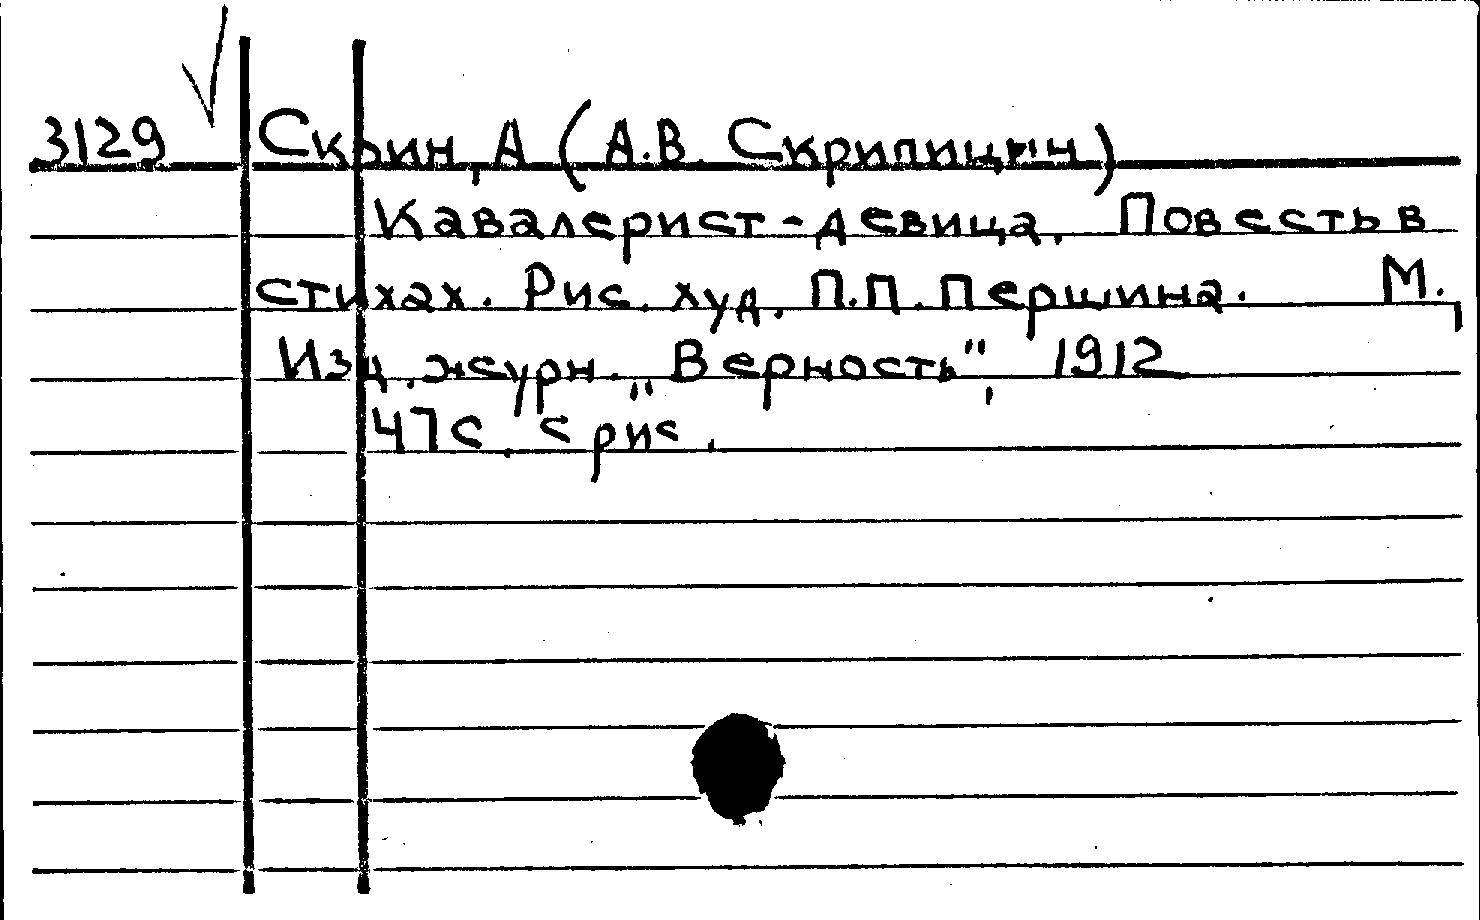 3129 Скрин, А (А.В. Скрипицын)
Кавалерист-девица. Повесть в
стихах. Рис. худ. П.П. Першина. М.,
Изд. журн. „Верность", 1912
47с. с рис.